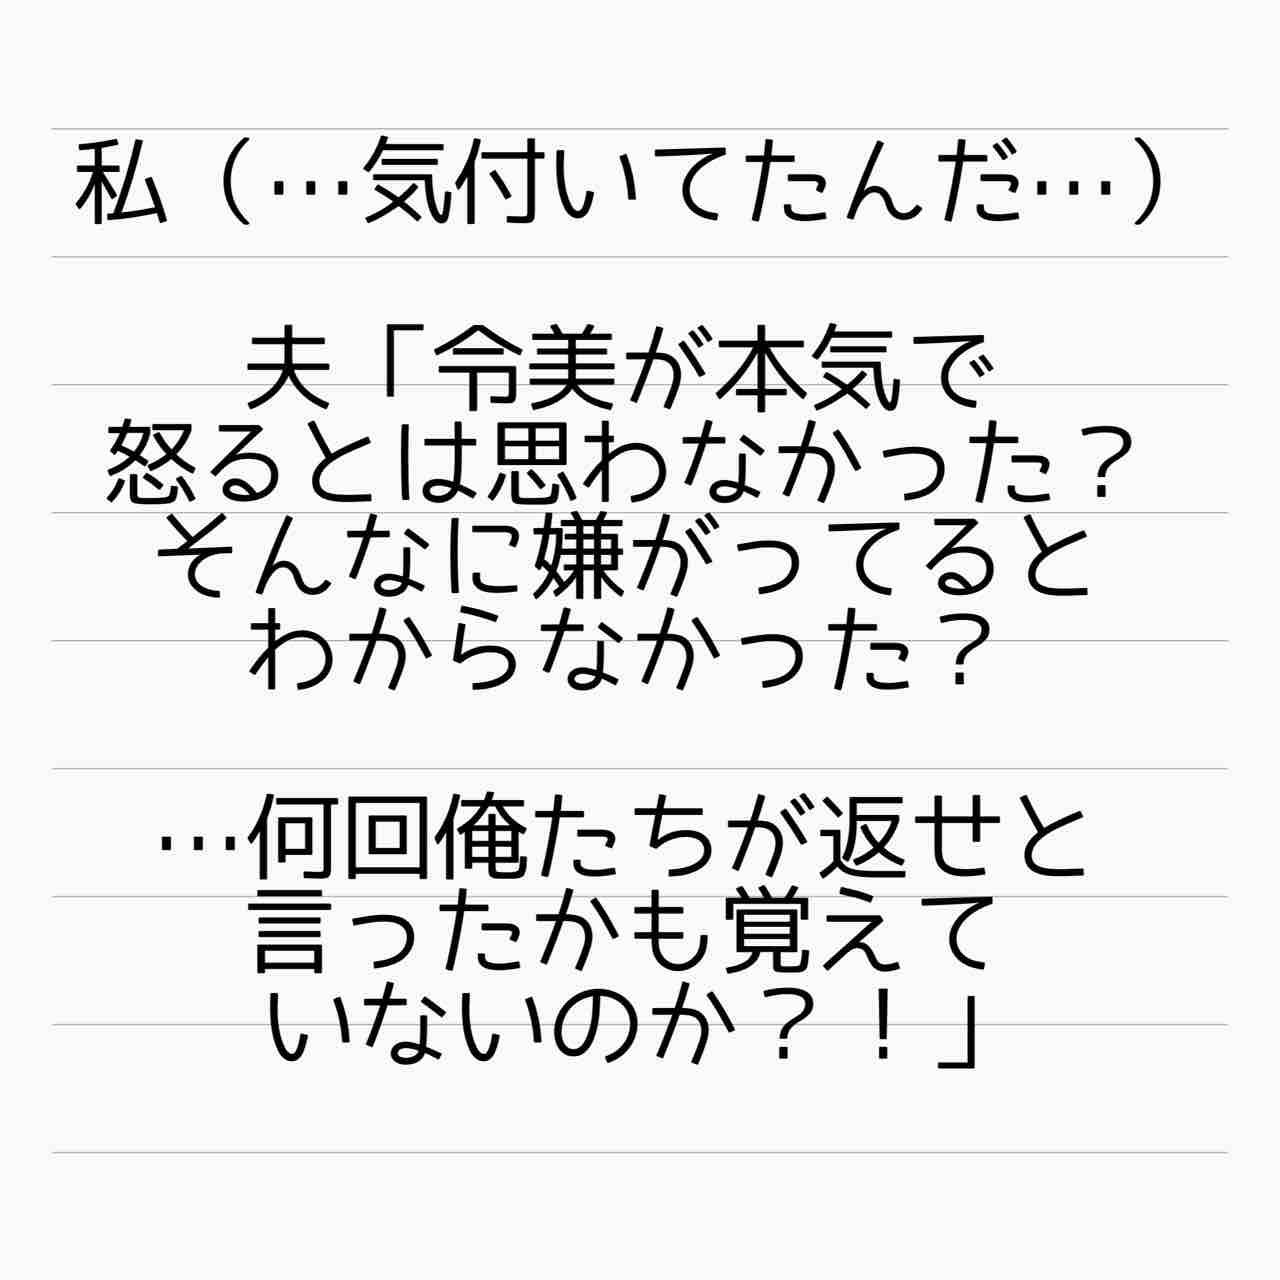 私（…気付いてたんだ…）
夫「令美が本気で
怒るとは思わなかった？
そんなに嫌がってると
わからなかった？
…何回俺たちが返せと
言ったかも覚えて
いないのか？！」